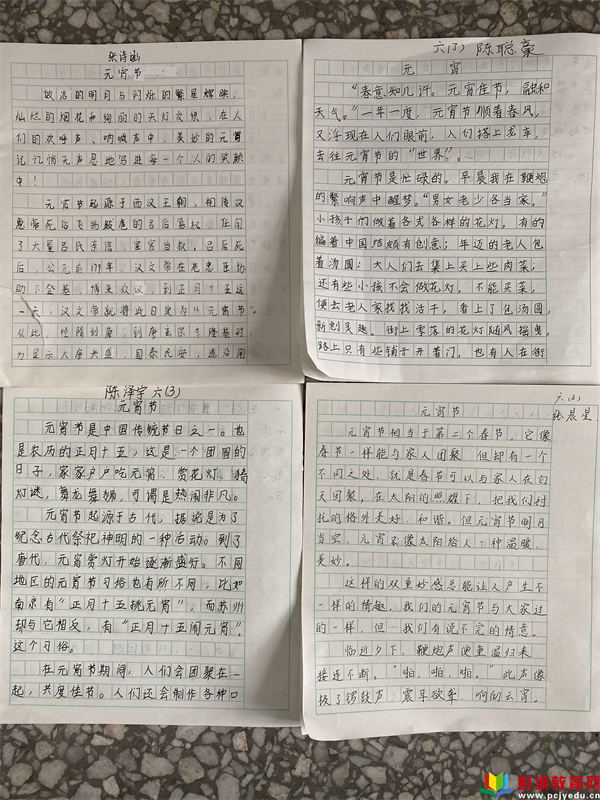 张诗涵
元宵节
皎洁的明月与闪烁的繁星辉映,
灿烂的烟花和绚丽的天灯交织,在人
们的欢呼声、呐喊声中,美妙的元宵
记忆悄无声息地写进每一个人的笑颜
中!
元宵节起源于西汉王朝,相传汉
惠帝死后
了大量吕氏亲信,宦官当权,吕后死
后,公元前179年,汉文帝在老忠臣协
助下登基,博采众议,到正月十五这
一天,汉文帝就将此日定为“元宵节”。
从此,经隋到唐,到唐玄宗李隆基时,
为显示大唐兴盛,国泰民安,
六(3) 陈聪豪
元宵
“春意知几许。元宵佳节,融和
天气。”一年一度,元宵节顺着春风,
又浮现在人们眼前,人们搭上龙车,
去往元宵节的“世界”。
元宵节是忙碌的。早晨我在鞭炮
的繁响声中醒梦。“男女老少各当家。”
小孩子们做着各式各样的花灯,有的
编着中国结颇有创意;年迈的老人包
着汤圆;大人们去集上买上些肉菜;
还有些小孩不会做花灯,不能买菜,
便去老人家找找活干,看上了包汤圆,
新创灵趣。街上零落的花灯随风摇曳,
路上只有些铺子开着门,也有人在街
陈泽宇 六(3)
元宵节
元宵节是中国传统节日之一。也
是农历的正月十五,这是一个团圆的
日子,家家户户吃元宵、赏花灯、猜
灯谜,舞龙舞狮,可谓是热闹非凡。
元宵节起源于古代,据说是为了
纪念古代祭祀神明的一种活动。到了
唐代,元宵赏灯开始逐渐盛行。不同
地区的元宵节习俗也有所不同,比如
南京有“正月十五挑元宵”,而苏州
却与它相反,有“正月十五闹元宵”
这个习俗。
在元宵节期间,人们会团聚在一
起,共度佳节。人们还会制作各种口
六(3)
张晨星
元宵节
元宵节相当于第二个春节,它像
春节一样能与家人团聚,但却有一个
不同之处,就是春节可以与家人在白
天团聚,在太阳的照耀下,把我们衬
托的格外美好、和谐。但元宵节明月
当空,元宵不像太阳给人一种温暖、
美妙。
这样的双重妙感总能让人产生不
一样的情趣。我们的元宵节与大家过
的一样,但…我们有说不完的情意。
临近夕下,鞭炮声便重温归来,
接连不断。“啪,啪,啪。”此声像
极了锣鼓声,震耳欲聋,响彻云宵。
射城教育网
www.pcjyedu.cn